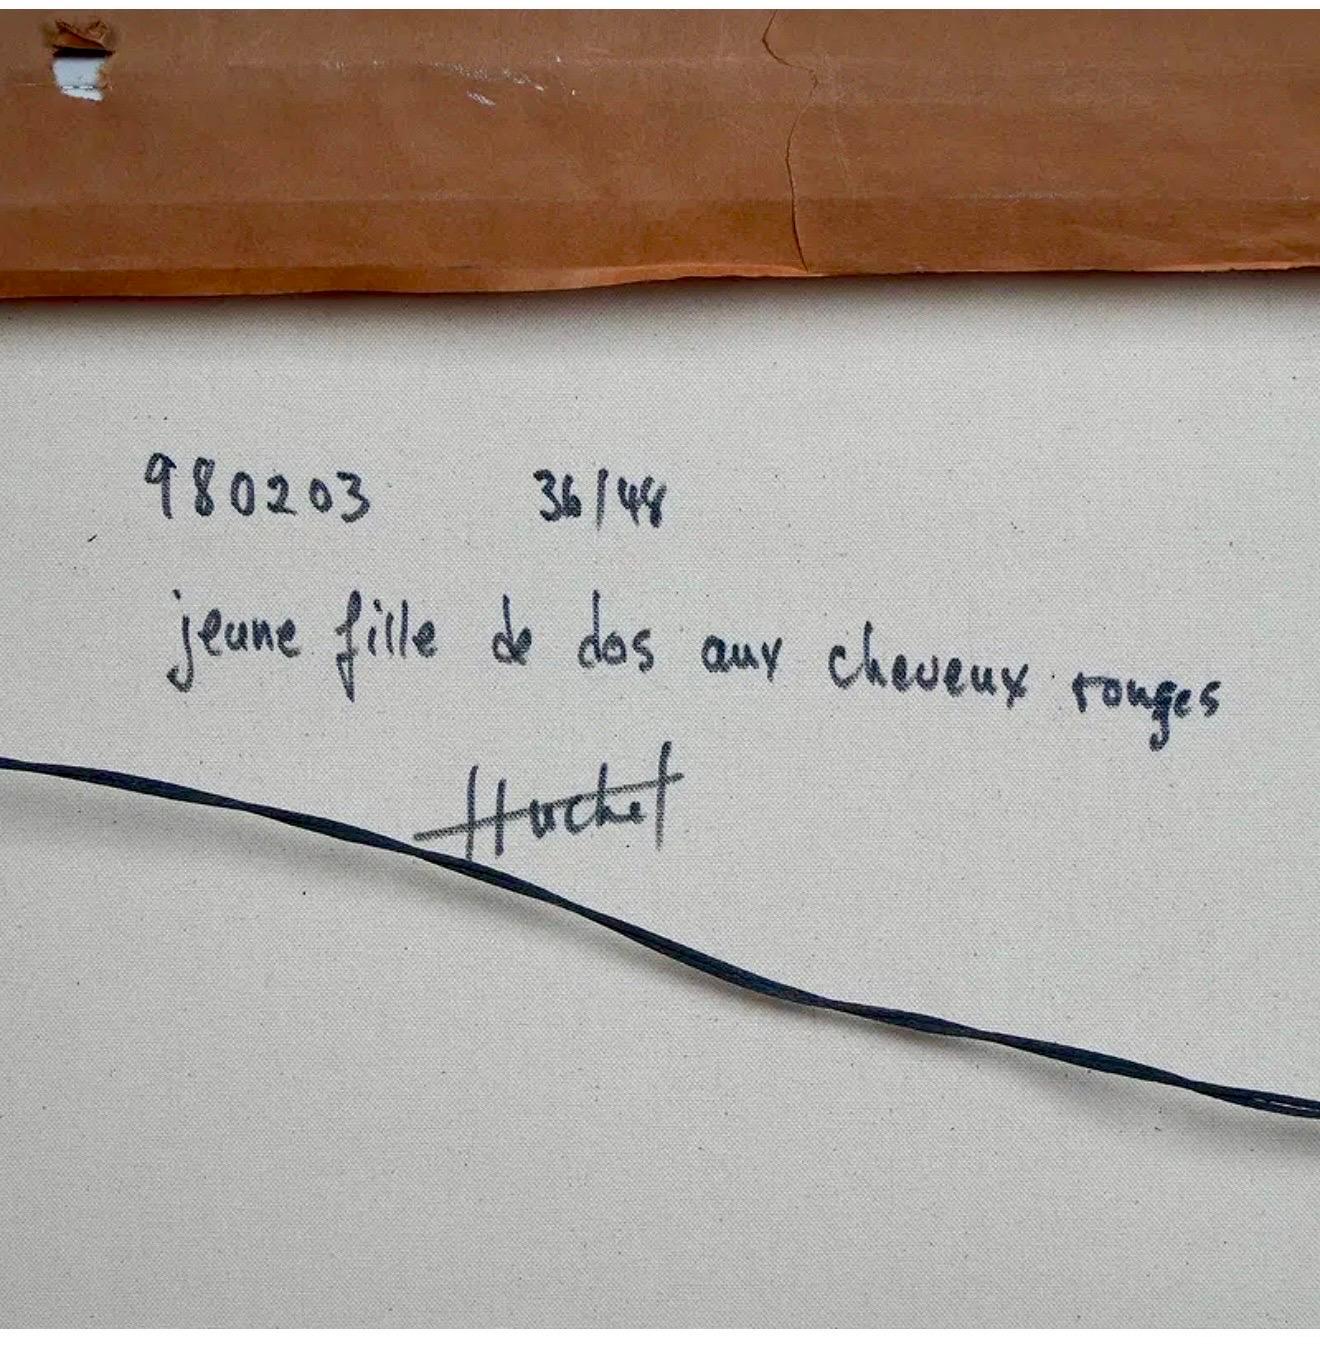 980203 36/48
jeune fille de dos aux cheveux rouges
Huchet